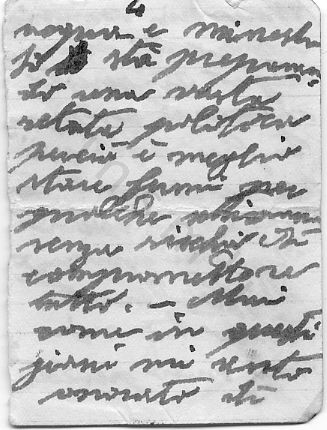 4
nazna e ministe
so sta preparan
do una vasta
retata politica
perciò è meglio
stare fermi per
qualche
senza rischio di
compromettere
tutto. — Mai
come in questi
giorni mi sento
onorato di